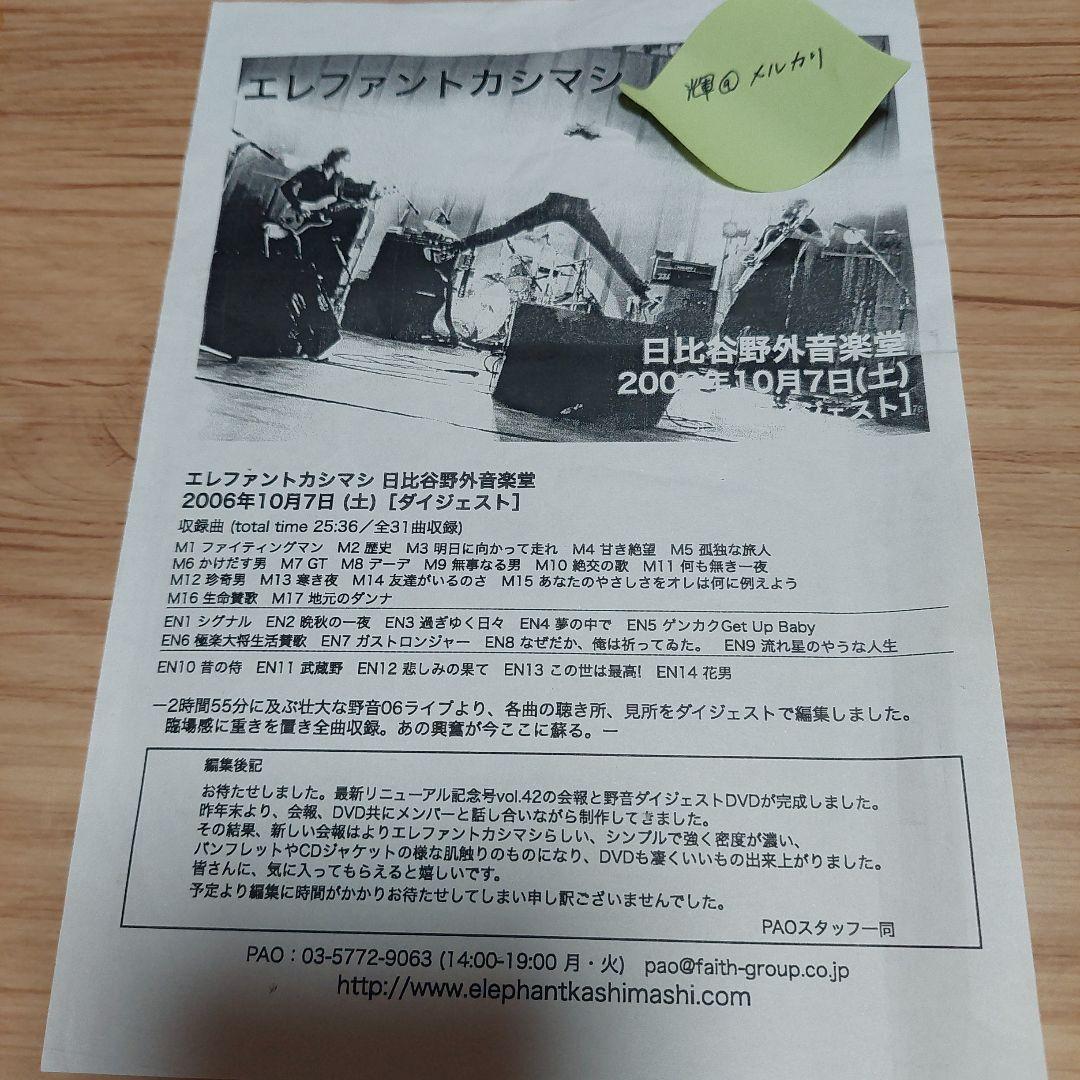 エレファントカシマシ
輝@メルカリ
日比谷野外音楽堂
2006年10月7日(土)
ジェスト]
エレファントカシマシ 日比谷野外音楽堂
2006年10月7日 (土) [ダイジェスト]
収録曲 (total time 25:36／全31曲収録)
M1 ファイティングマン M2 歴史 M3 明日に向かって走れ M4 甘き絶望 M5 孤独な旅人
M6 かけだす男 M7 GT M8 デーデ M9 無事なる男 M10 絶交の歌 M11 何も無き一夜
M12 珍奇男 M13 寒き夜 M14 友達がいるのさ M15 あなたのやさしさをオレは何に例えよう
M16 生命賛歌 M17 地元のダンナ
EN1 シグナル EN2 晩秋の一夜 EN3 過ぎゆく日々 EN4 夢の中で EN5 ゲンカクGet Up Baby
EN6 極楽大将生活賛歌 EN7 ガストロンジャー EN8 なぜだか、俺は祈ってゐた。 EN9 流れ星のやうな人生
EN10 昔の侍 EN11 武蔵野 EN12 悲しみの果て EN13 この世は最高! EN14 花男
ー2時間55分に及ぶ壮大な野音06ライブより、各曲の聴き所、見所をダイジェストで編集しました。
臨場感に重きを置き全曲収録。あの興奮が今ここに蘇る。ー
編集後記
お待たせしました。最新リニューアル記念号vol.42の会報と野音ダイジェストDVDが完成しました。
昨年末より、会報、DVD共にメンバーと話し合いながら制作してきました。
その結果、新しい会報はよりエレファントカシマシらしい、シンプルで強く密度が濃い、
パンフレットやCDジャケットの様な肌触りのものになり、DVDも凄くいいもの出来上がりました。
皆さんに、気に入ってもらえると嬉しいです。
予定より編集に時間がかかりお待たせしてしまい申し訳ございませんでした。
PAOスタッフ一同
PAO：03-5772-9063 (14:00-19:00 月・火) pao@faith-group.co.jp
http://www.elephantkashimashi.com